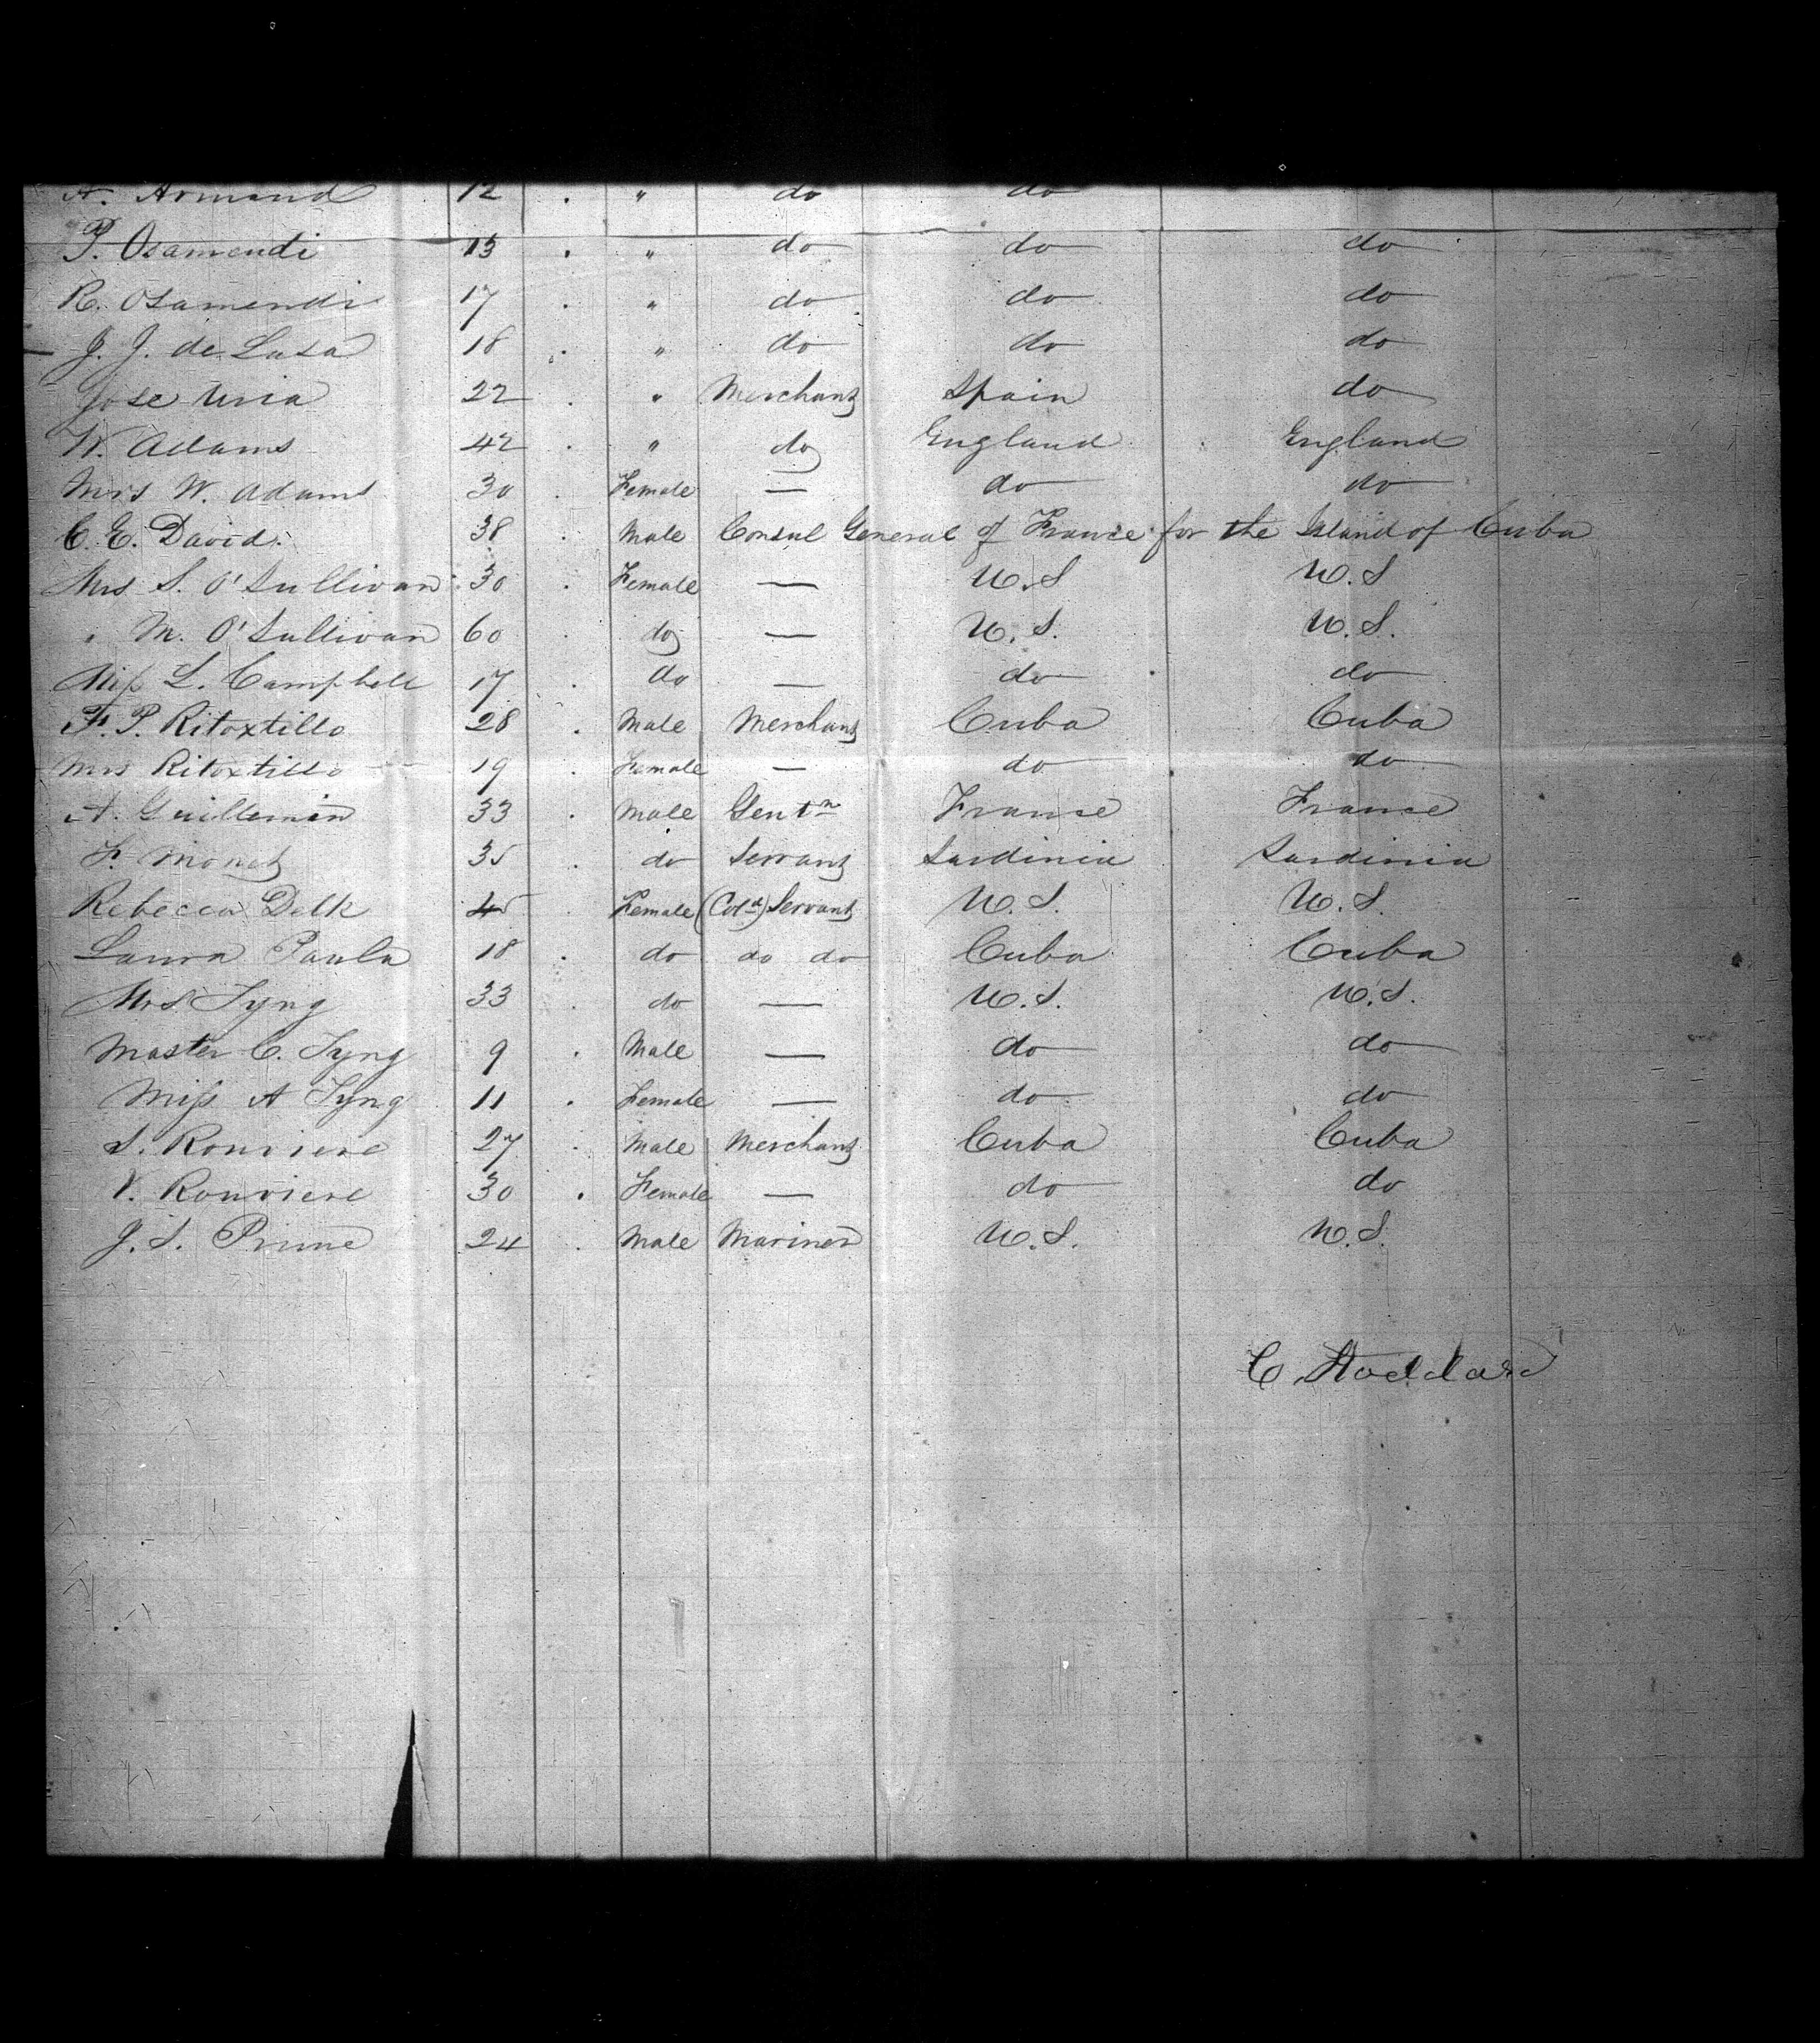 A. Armand 12 . " do do
P. Osamendi 13 . " do do do
R. Osamendi 17 . " do do do
J. J. de Lasa 18 . " do do do
Jose Uria 22 . " Merchant Spain do
W. Adams 42 . " do England England
Mrs W. Adams 30 . Female — do do
C. E. David. 38 . Male Consul General of France for the Island of Cuba
Mrs S. O'Sullivan 30 . Female — U.S U.S
" M. O'Sullivan 60 . do — U.S. U.S.
Miss L. Campbell 17 . do — do do
F. P. Ritoxtillo 28 . Male Merchant Cuba Cuba
Mrs Ritoxtillo 19 . Female — do do
A. Guillemin 33 . Male Gentn France France
F. Monet 35 do Servant Sardinia Sardinia
Rebecca Delk 45 . Female (Cold) Servant U.S. U.S.
Laura Paula 18 . do do do Cuba Cuba
Mrs. Tyng 33 . do — U.S. U.S.
Master C. Tyng 9 . Male — do do
Miss A Tyng 11 . Female — do do
S. Rouviere 27 . Male Merchant Cuba Cuba
V. Rouviere 30 . Female — do do
J. S. Prime 24 . Male Mariner U.S. U.S.
C. Stoddard